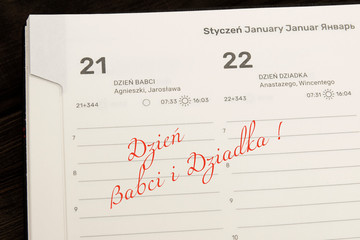 Styczeń January Januar Январь
21
DZIEŃ BABCI
Agnieszki, Jarosława
21+344 07:33 16:03
22
DZIEŃ DZIADKA
Anastazego, Wincentego
22+343 07:31 16:04
7
8
9
7
8
9
10
Dzień
Babci i Dziadka !